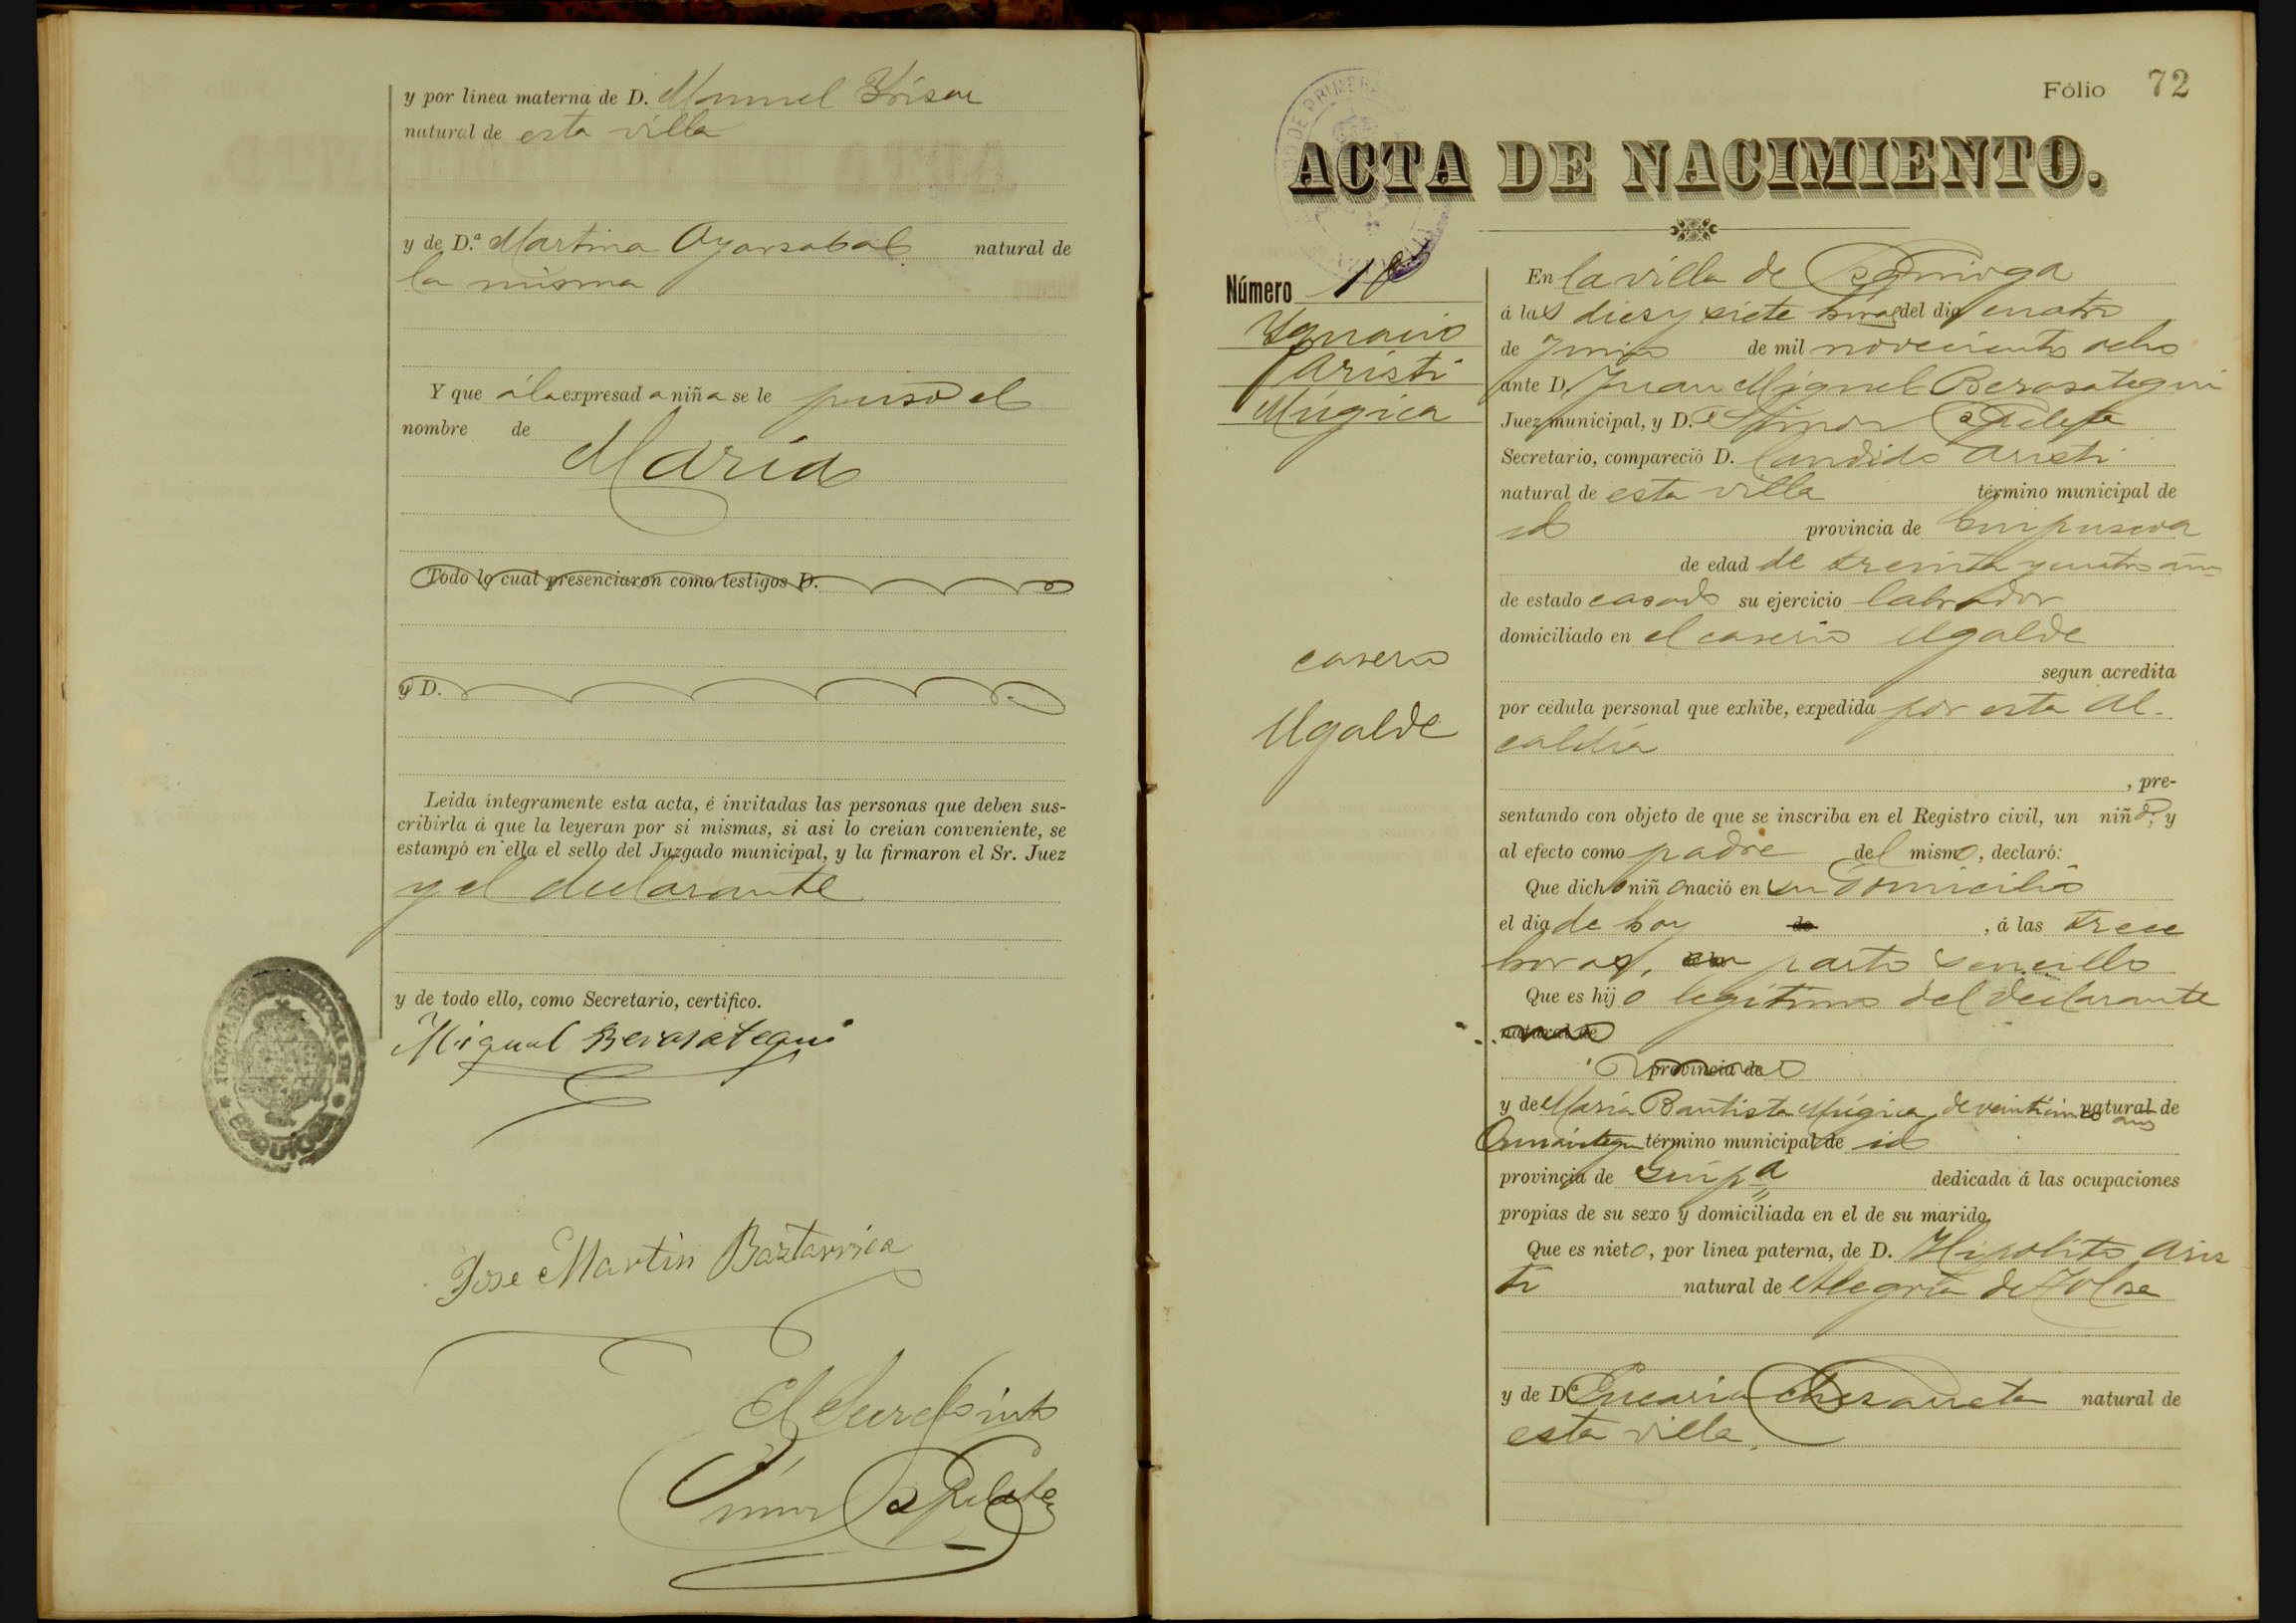 y por línea materna de D. Manuel Yrisar
natural de esta villa
y de D.ª Martina Oyarzabal natural de
la misma
Y que á la expresada niña se le puso el
nombre de
María
Todo lo cual presenciaron como testigos D.
y D.
Leida íntegramente esta acta, é invitadas las personas que deben sus-
cribirla á que la leyeran por si mismas, si asi lo creian conveniente, se
estampó en ella el sello del Juzgado municipal, y la firmaron el Sr. Juez
y el declarante
y de todo ello, como Secretario, certifico.
JUZGADO MUNICIPAL DE EZQUIOGA
Miguel Berasategui
Jose Martin Baztarrica
El Secretario
Fólio 72
ACTA DE NACIMIENTO.
Número
Ygnacio
Aristi
Múgica
caserio
Ugalde
En la villa de Ezquioga
á las diez y siete horas del dia cuatro
de Junio de mil novecientos ocho
ante D. Juan Miguel Berasategui
Juez municipal, y D.
Secretario, compareció D. Candido Aristi
natural de esta villa término municipal de
id provincia de Guipuzcoa
de edad de treinta y cuatro años
de estado casado su ejercicio labrador
domiciliado en el caserio Ugalde
segun acredita
por cédula personal que exhibe, expedida por esta Al-
caldía
, pre-
sentando con objeto de que se inscriba en el Registro civil, un niño, y
al efecto como padre del mismo, declaró:
Que dicho niño nació en su domicilio
el dia de hoy de , á las trece
horas, parto sencillo
Que es hijo legitimo del declarante
natural de
provincia de
y de María Bautista Múgica, de veinticinco años natural de
Ormáiztegui término municipal de id
provincia de Guip.a dedicada á las ocupaciones
propias de su sexo y domiciliada en el de su marido.
Que es nieto, por línea paterna, de D. Hipolito Aris
ti natural de Alegría de Tolosa
y de D.ª natural de
esta villa.